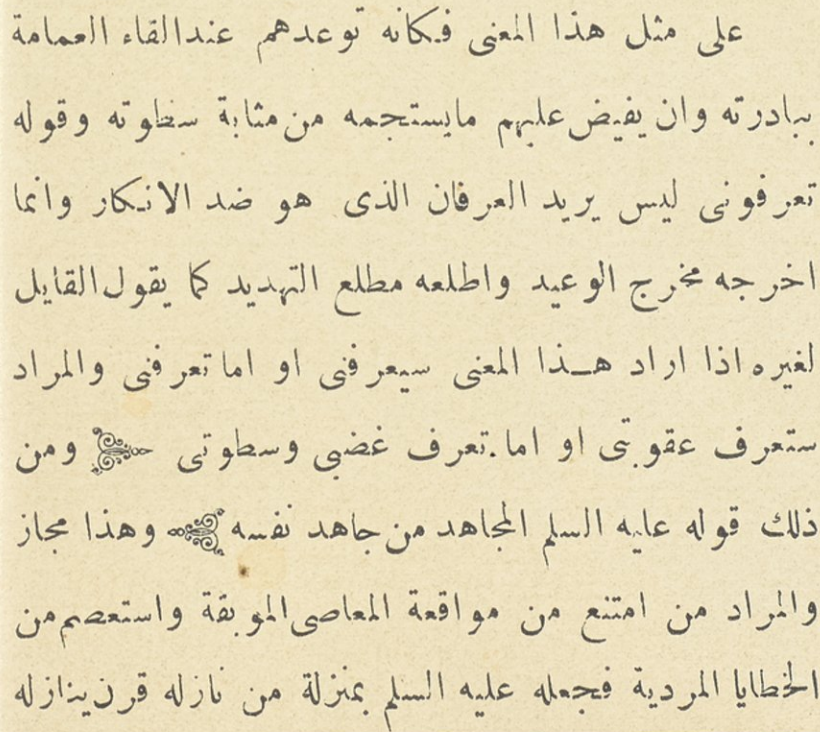 على مثل هذا المعنى فكانه توعدهم عندالقاء العمامة
ببادرته وان يفيض عليهم مايستجمه من مثابة سطوته وقوله
تعرفونى ليس يريد العرفان الذى هو ضد الانكار وانما
اخرجه مخرج الوعيد واطلعه مطلع التهديد كما يقول القايل
لغيره اذا اراد هــذا المعنى سيعرفنى او اما تعرفنى والمراد
ستعرف عقوبتى او اما.تعرف غضبى وسطوتى ومن
ذلك قوله عليه السلم المجاهد من جاهد نفسه وهذا مجاز
والمراد من امتنع من مواقعة المعاصى الموبقة واستعصم من
الخطايا المردية فجعله عليه السلم بمنزلة من نازله قرن ينازله